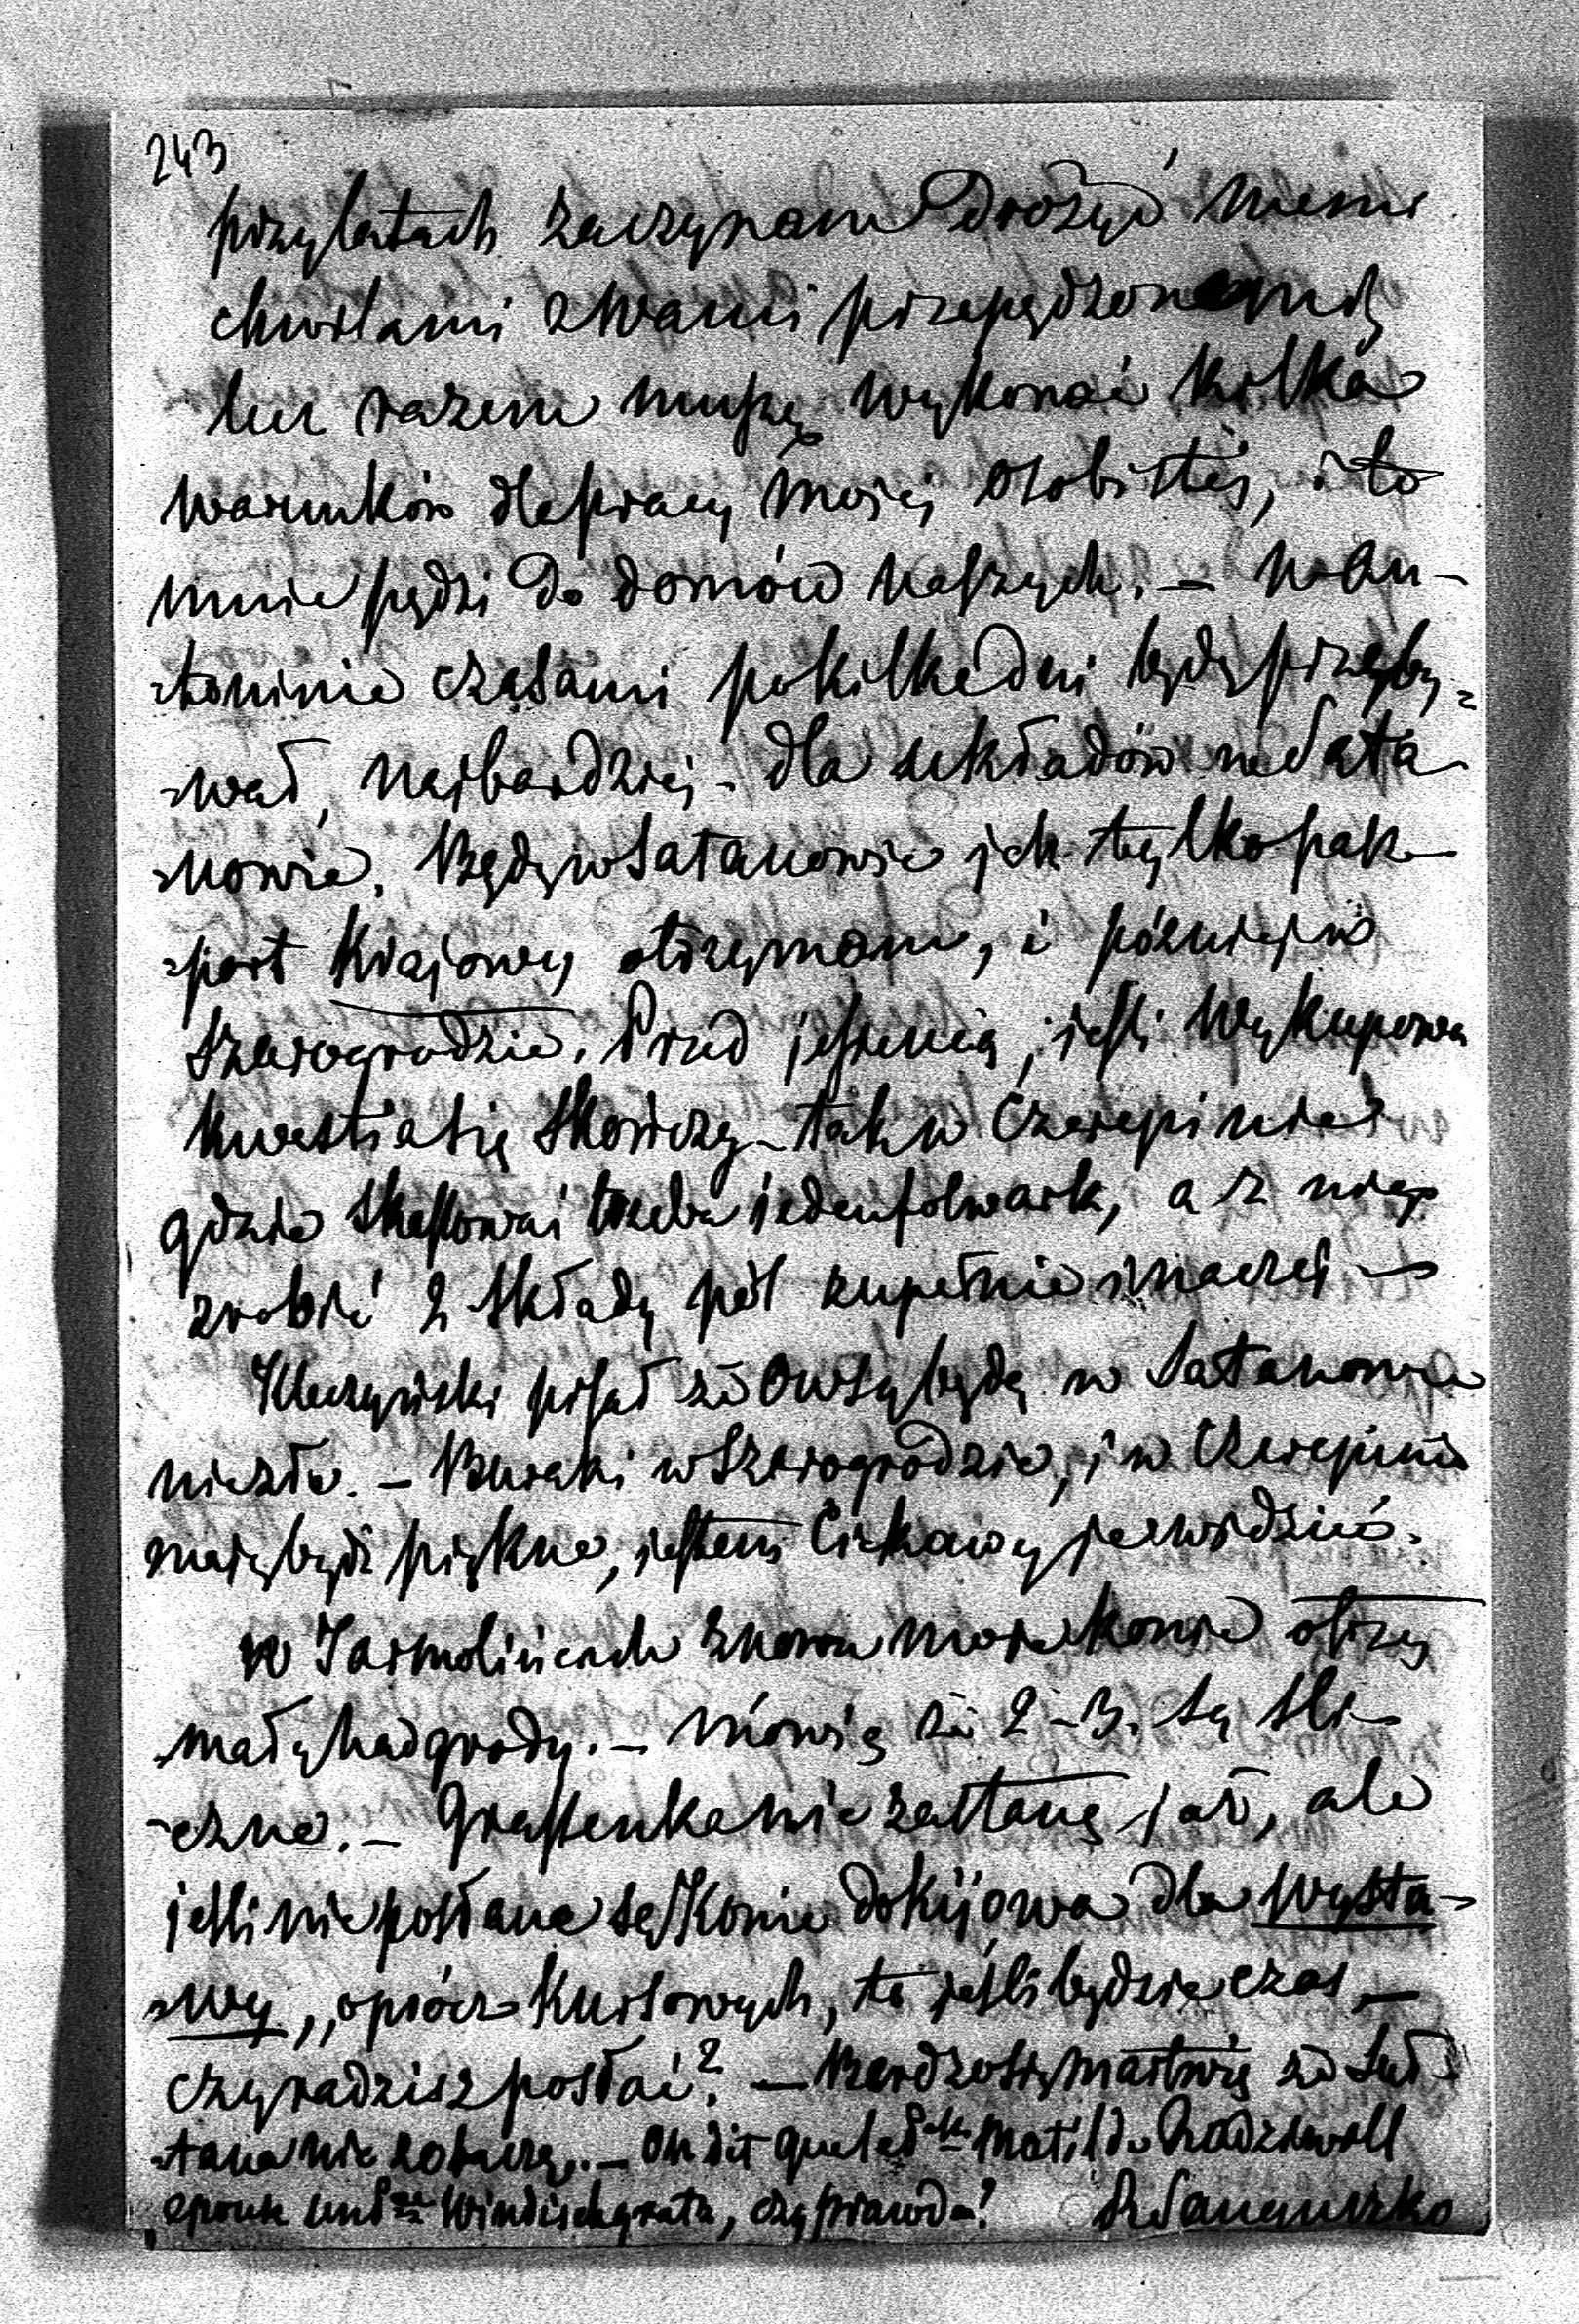 243
przy latach zaczynam drożyć niemi
chwilami z Wami przepędzonemi,
lecz razem muszę wykonać kilka
warunków dla pracy mojej osobistej, i to
mnie pędzi do domów naszych. — w An-
-toninie czasami po kilka dni będę przeby-
-wał, najbardziej - dla układów w Sata-
-nowie. Będę w Satanowie jak tylko pasz-
-port Krajowy otrzymam, i później w
Szarogrodzie. Przed jesienią, jeśli wykupowa
kwestia się skończy - tak w Czerepinie
gdzie skasować trzeba jeden folwark, a z niego
zrobić 2 składy pól zupełnie inaczej —
Kleczyński pisał że Owsy będą w Satanowie
niezłe. — Buraki w Szarogrodzie, i w Czerepinie
mają być piękne, jestem Ciekawy je widzieć.
w Jarmolińcach znowu moje konie otrzy
-mały nadgrody. — mówią że 2-3. są śli-
-czne. — nie zastanę już, ale
jeśli nie posłane są Konie do Kijowa dla Wysta-
-wy, oprócz Kursowych, to jeśli będzie czas, —
czy radzisz posłać? — Bardzo się martwię że Suł
-tana nie zobaczę. — On dit que la Matilde Radziwill
epouse un Windischgratz, czy prawda? RSanguszko